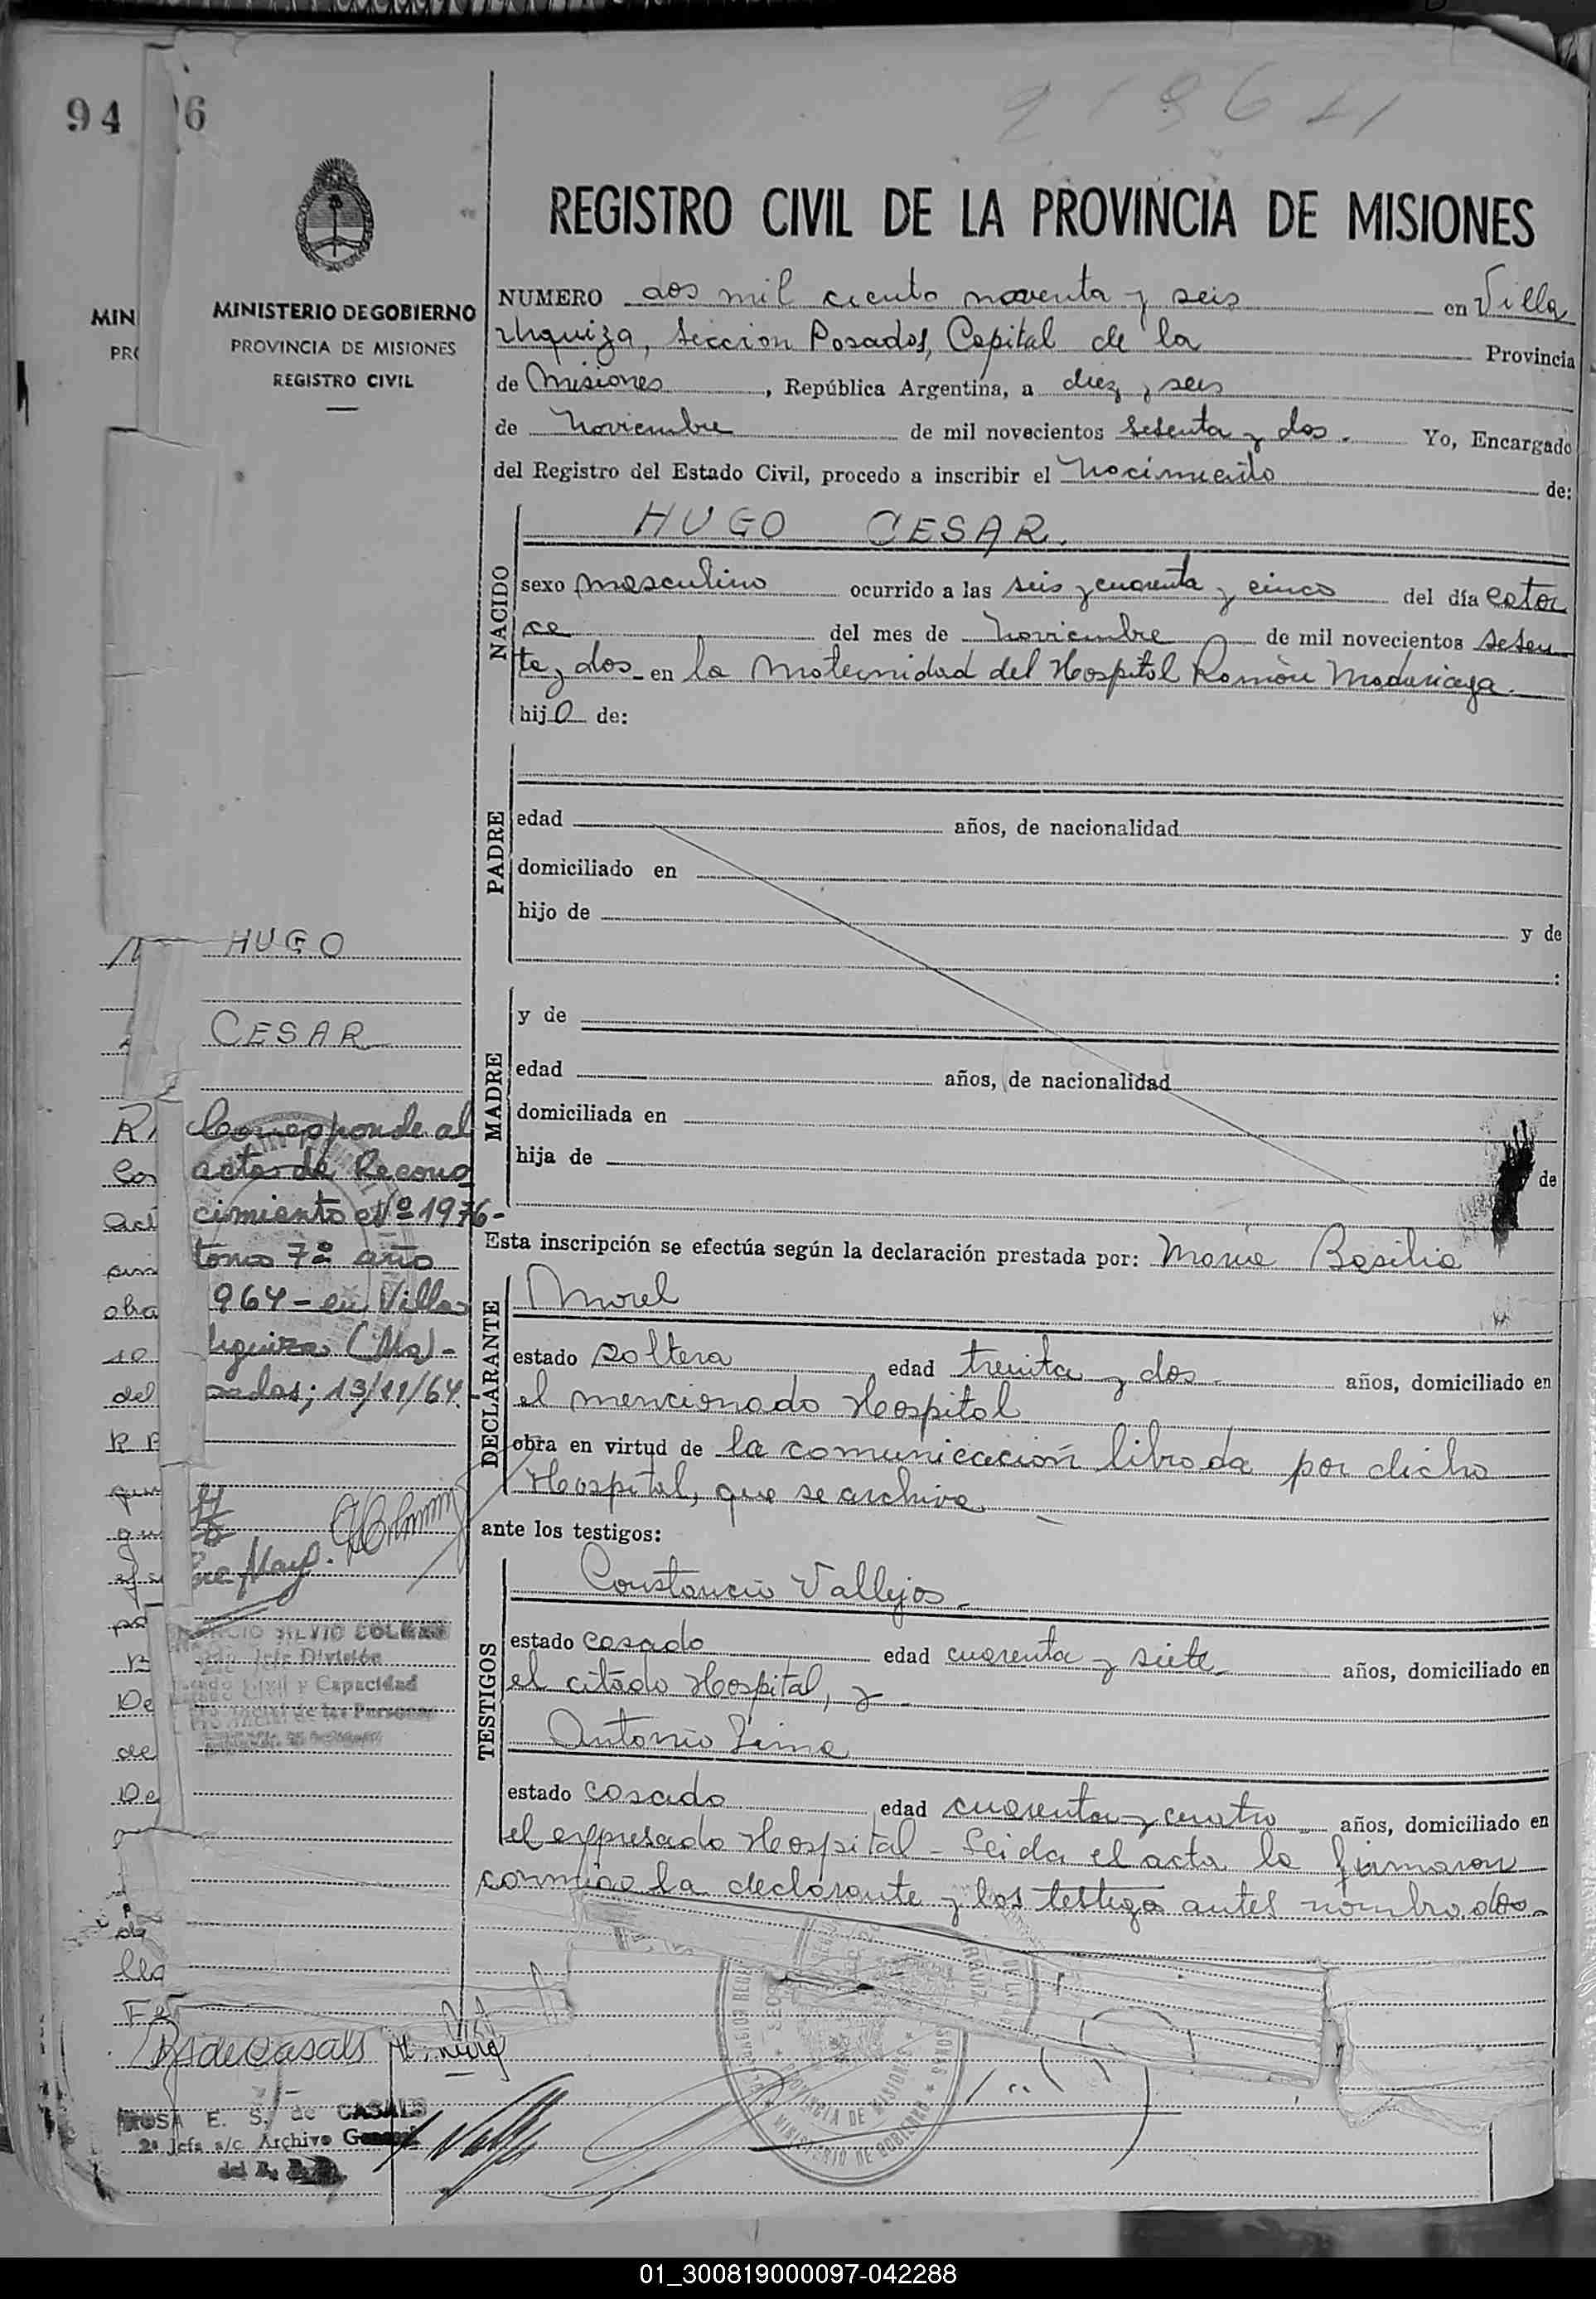 94
6
REGISTRO CIVIL DE LA PROVINCIA DE MISIONES
MIN
MINISTERIO DE GOBIERNO
PROVINCIA DE MISIONES
REGISTRO CIVIL
NUMERO dos mil ciento noventa y seis en Villa
Urquiza, Sección Posadas, Capital de la Provincia
de Misiones, República Argentina, a diez y seis
de Noviembre de mil novecientos sesenta y dos. Yo, Encargado
del Registro del Estado Civil, procedo a inscribir el Nacimiento de:
NACIDO
HUGO CESAR.
sexo masculino ocurrido a las seis y cuarenta y cinco del día cator
ce del mes de Noviembre de mil novecientos sesen
ta y dos en la Maternidad del Hospital Ramón Madariaga.
hijo de:
PADRE
edad años, de nacionalidad
domiciliado en
hijo de y de
:
MADRE
y de
edad años, de nacionalidad
domiciliada en
hija de de
Esta inscripción se efectúa según la declaración prestada por: María Basilia
DECLARANTE
Morel
estado soltera edad treinta y dos años, domiciliado en
el mencionado Hospital
obra en virtud de la comunicación librada por dicho
Hospital, que se archiva.
ante los testigos:
TESTIGOS
Constancio Vallejos.
estado casado edad cuarenta y siete años, domiciliado en
el citado Hospital, y
Antonio Lima
estado casado edad cuarenta y cuatro años, domiciliado en
el expresado Hospital - Leida el acta la firmaron
conmigo la declarante y los testigos antes nombrados.
HUGO
CESAR
Corresponde al
acta de Recono
cimiento Nº 1976-
tomo 7º año
964 - en Villa
Urquiza (Ms) -
13/11/64.
SILVIO
Jefe División
Civil y Capacidad
de las Personas
ROSA E. S. de CASALS
2ª Jefa a/c. Archivo General
del
PROVINCIA DE MISIONES
MINISTERIO DE GOBIERNO
01_300819000097-042288